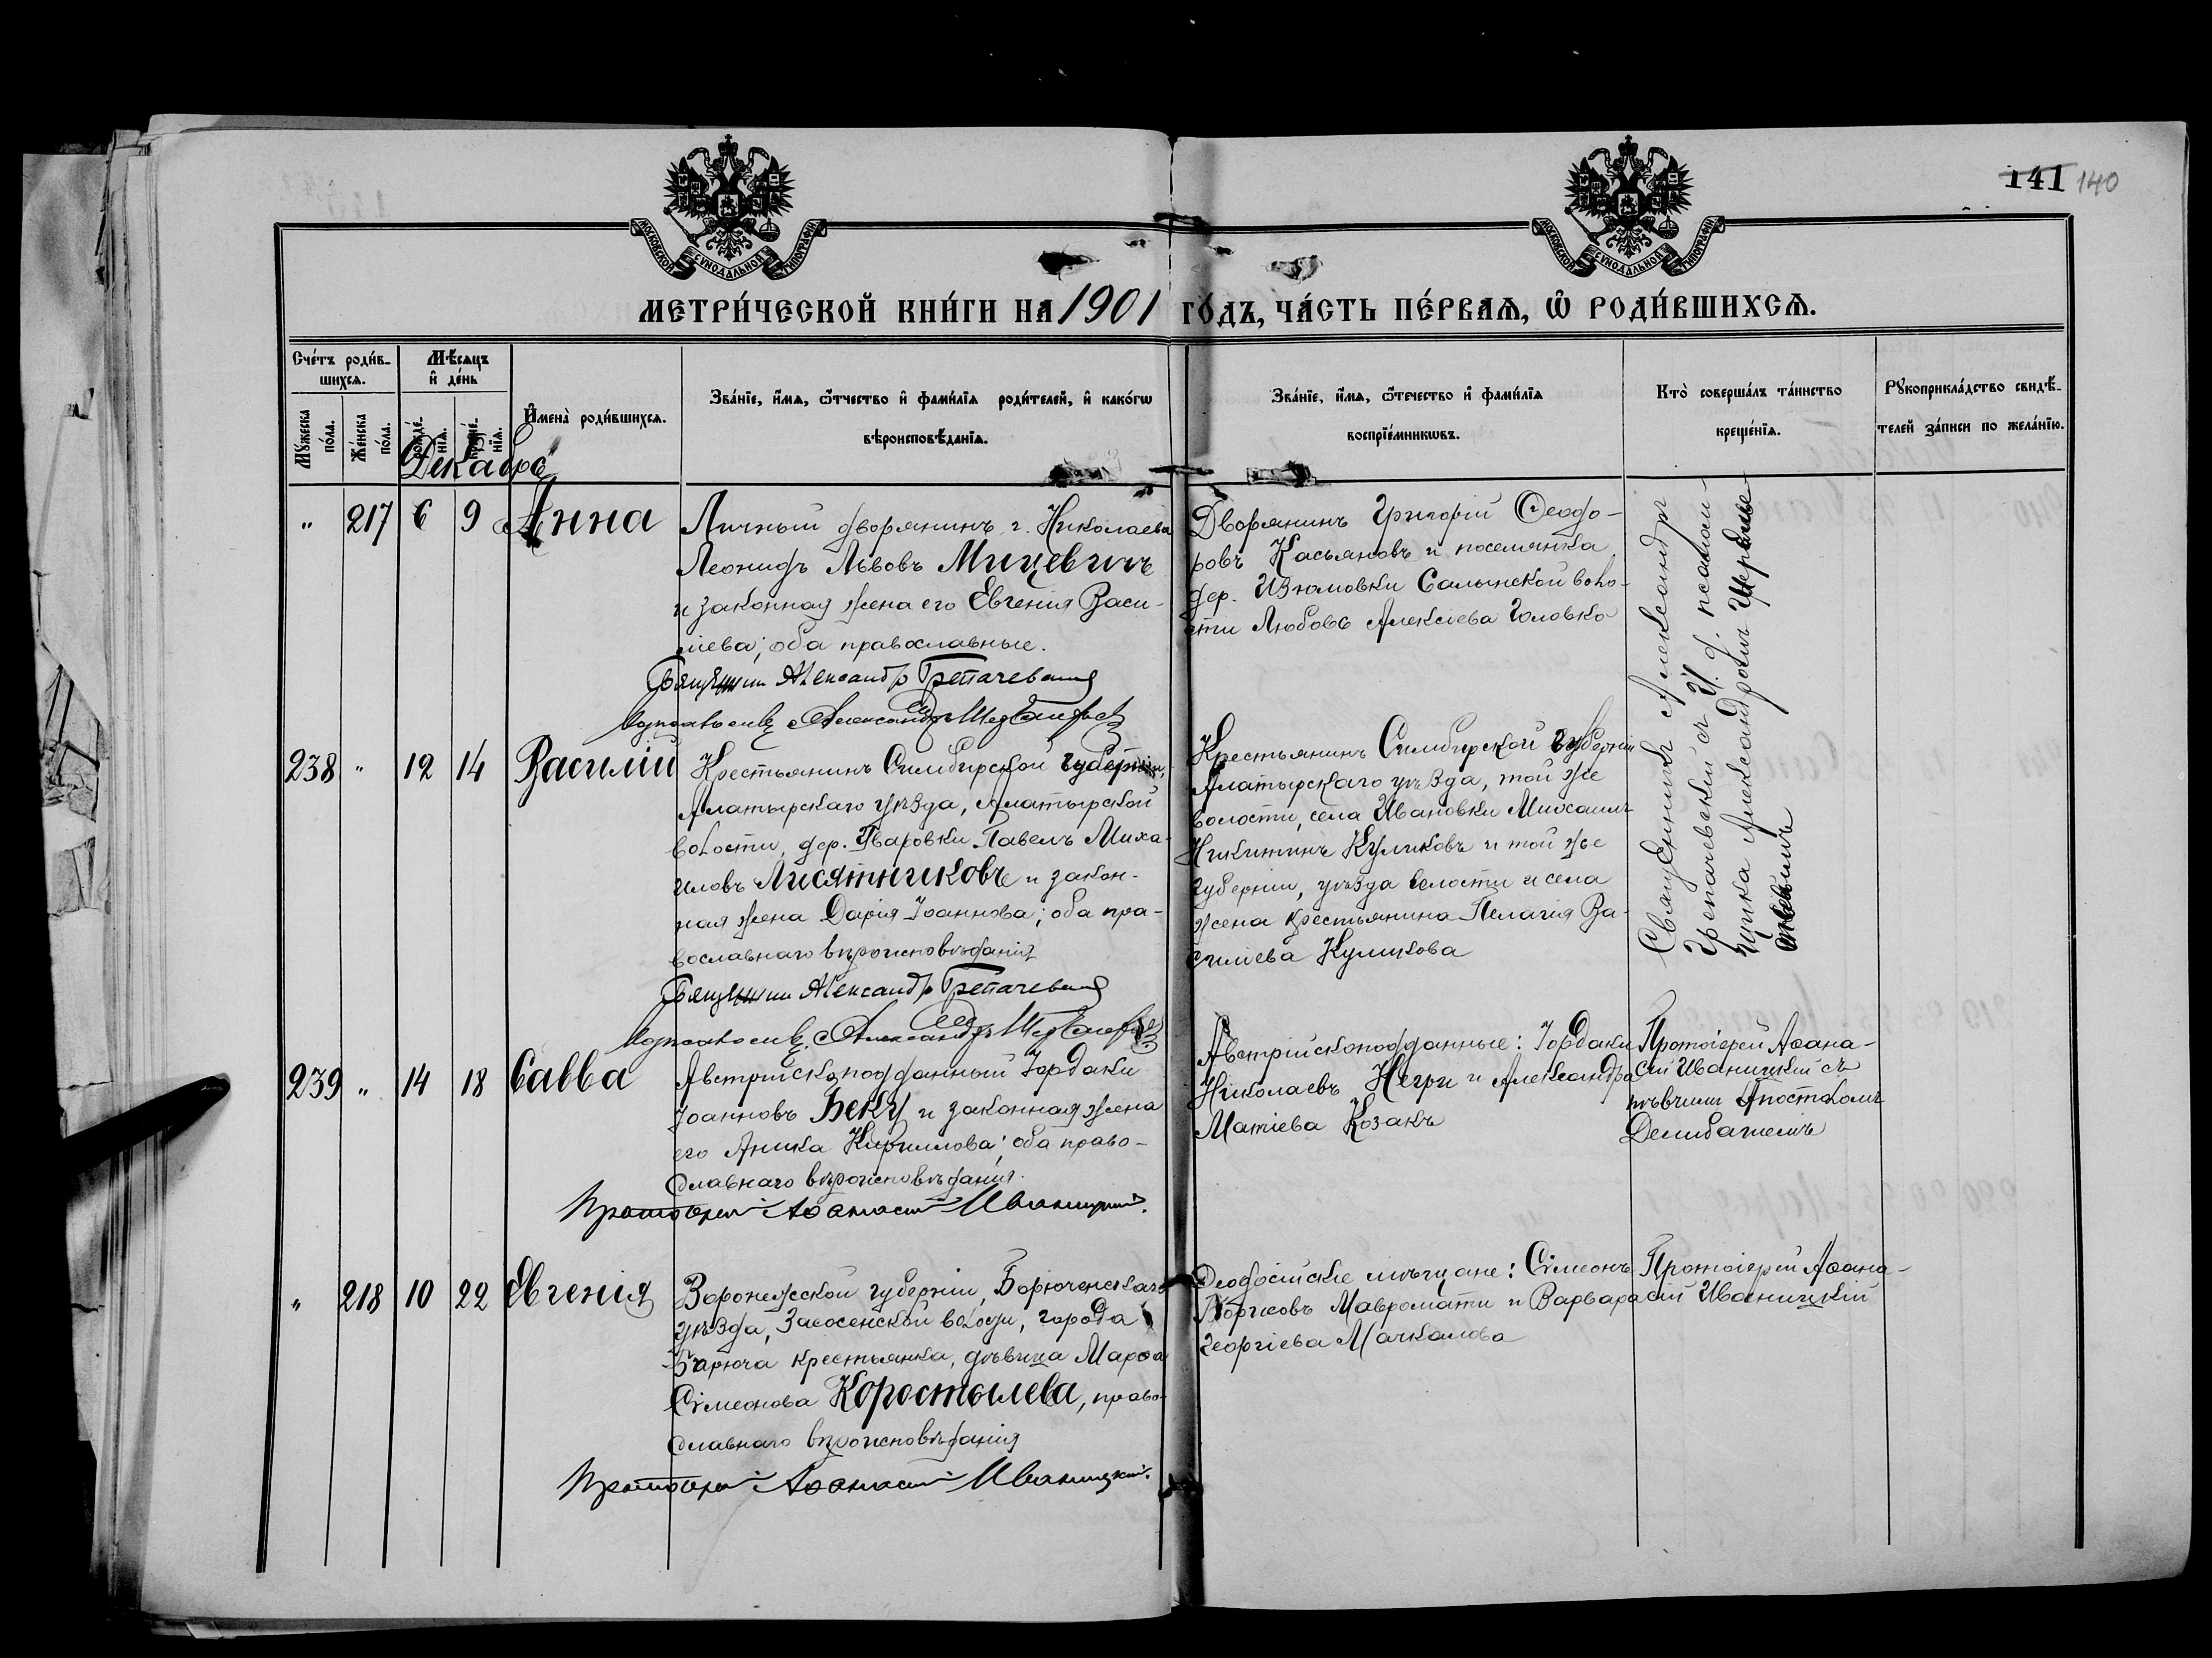 141 140
МОСКОВСКОЙ СѴНОДАЛЬНОЙ ТИПОГРАФІИ
МОСКОВСКОЙ СѴНОДАЛЬНОЙ ТИПОГРАФІИ
МЕТРИ́ЧЕСКОЙ КНИ́ГИ НА 1901 ГО́ДЪ, ЧА́СТЬ ПЕ́РВАѦ, Ѡ҆ РОДИ́ВШИХСѦ.
Счéтъ роди́в-
шихсѧ.
Мѣ́сѧцъ
и҆ дéнь
Мꙋ́жеска по́ла.
Же́нска по́ла.
рожде́-
нїѧ.
креще́-
нїѧ.
И҆мена̀ роди́вшихсѧ.
Зва́нїе, и҆́мѧ, ѻ҆́тчество и҆ фами́лїѧ роди́телей, и҆ како́гѡ
вѣроисповѣ́данїѧ.
Зва́нїе, и҆́мѧ, ѻ҆́течество и҆ фами́лїѧ
воспрїе́мникѡвъ.
Кто̀ соверша́лъ та́инство
креще́нїѧ.
Рꙋкоприкла́дство свидѣ́-
телей за́писи по жела́нїю.
Декабрь
" 217 6 9 Анна
Личный дворянинъ г. Николаева
Леонидъ Львовъ Мицевичъ
и законная жена его Евгенія Васи-
ліева; оба православные.
Священникъ Александръ Грепачевскій
Александръ
Дворянинъ Григорій Ѳеодо-
ровъ Касьяновъ и поселянка
дер. Изюмовки Салынской воло-
сти Любовь Алексіева Головко
Священникъ Александръ
Грепачевскій съ И. д. псалом-
щика Александромъ
238 " 12 14 Василій
Крестьянинъ Симбирской губерніи,
Алатырскаго уѣзда, Алатырской
волости, дер. Иваровки Павелъ Миха-
иловъ Лисятниковъ и закон-
ная жена Дарія Іоаннова; оба пра-
вославнаго вѣроисповѣданія
Священникъ Александръ Грепачевскій
Александръ
Крестьянинъ Симбирской губерніи
Алатырскаго уѣзда, той же
волости, села Ивановки Михаилъ
Никитинъ Куликовъ и той же
губерніи, уѣзда волости и села
жена крестьянина Пелагія Ва-
силіева Куликова
239 " 14 18 Савва
Австрійскоподданный Іордаки
Іоанновъ Беку и законная жена
его Аника Кириллова; оба право-
славнаго вѣроисповѣданія.
Протоіерей Аѳанасій Иваницкій.
Австрійскоподданные: Іордаки
Николаевъ Негри и Александра
Матіева Козакъ
Протоіерей Аѳана-
сій Иваницкій съ
пѣвчимъ Апостоломъ
Делибашемъ
" 218 10 22 Евгенія
Воронежской губерніи, Бирюченскаго
уѣзда, Засосенской волости, города
Бирюча крестьянка, дѣвица Марѳа
Симеонова Коростылева, право-
славнаго вѣроисповѣданія
Протоіерей Аѳанасій Иваницкій.
Ѳеодосійскіе мѣщане: Симеонъ
Георгіевъ Мавромати и Варвара
Георгіева Мачкалова
Протоіерей Аѳана-
сій Иваницкій